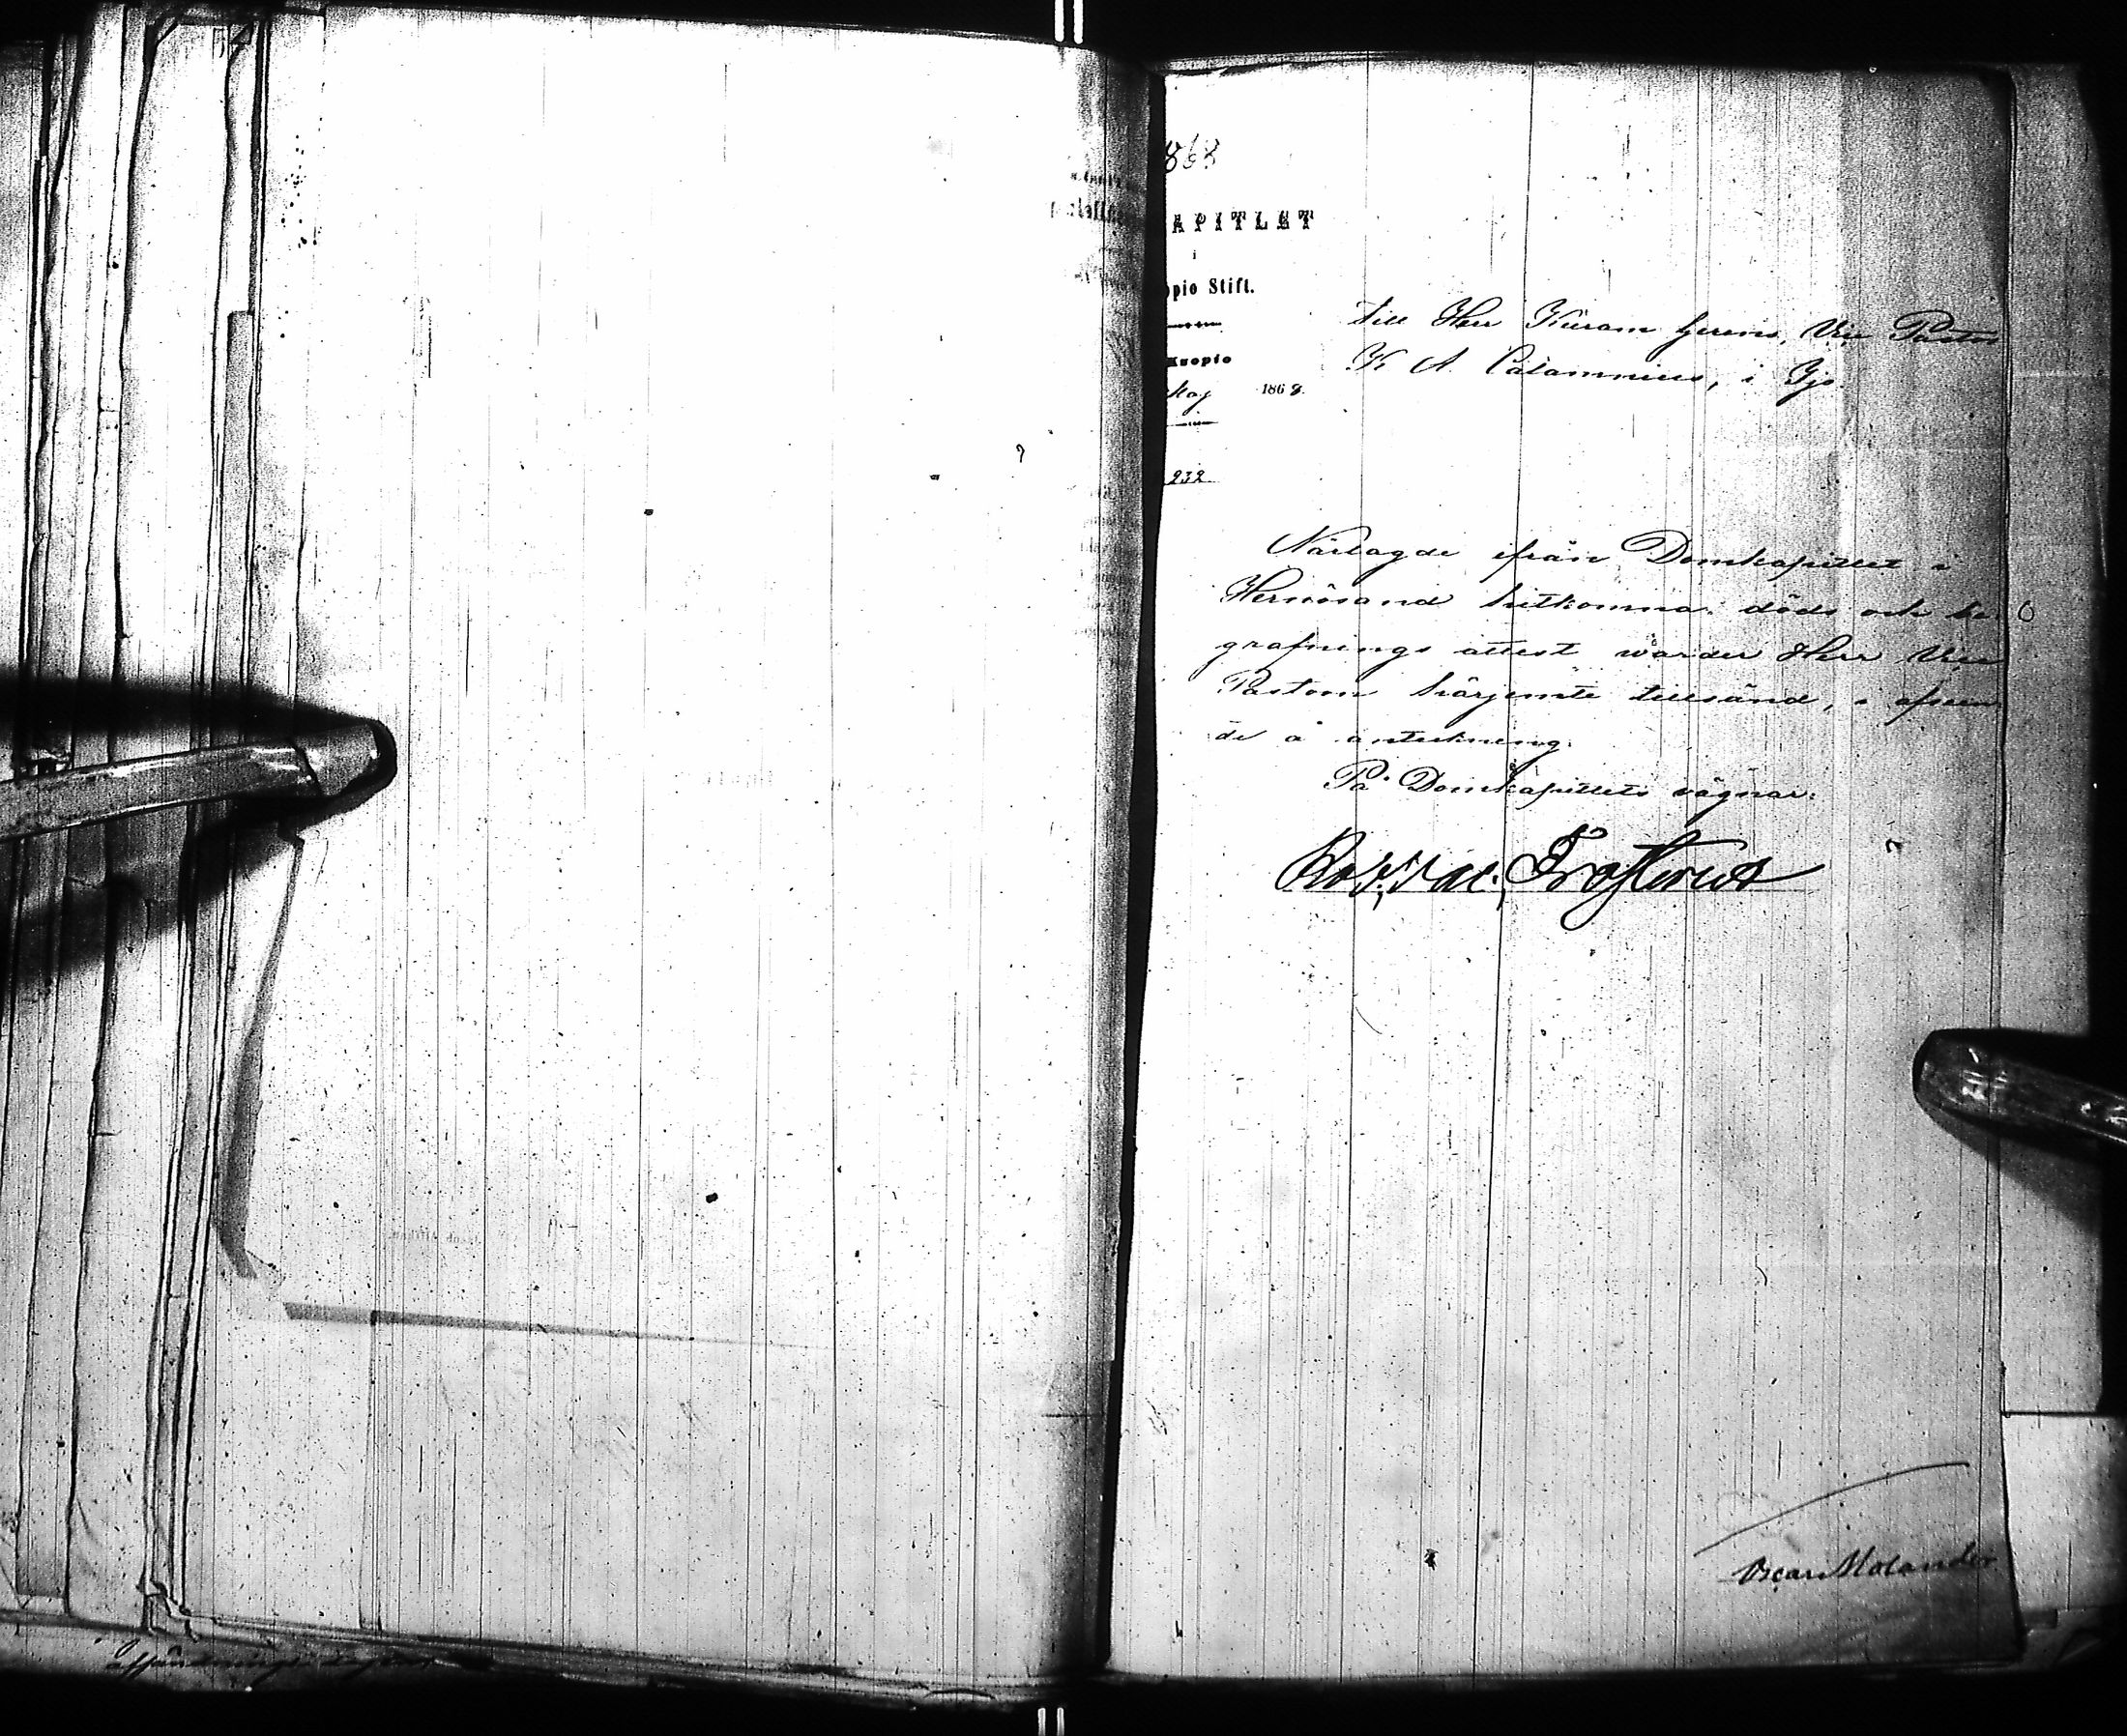 868
APITLET
i
pio Stift.
Kuopio
1868.
232
Till Herr Kyrkoherdens, Vice Pastor
K A Calamnius, i Ijo.
Närlagde ifrån Domkapitlet i
Hernösand hitkomna döds och be-
grafnings attest warder Herr Vice
Pastorn härjemte tillsänd, i afseen
de å anteckning.
På Domkapitlets vägnar:
Frosterus
Oscar Molander